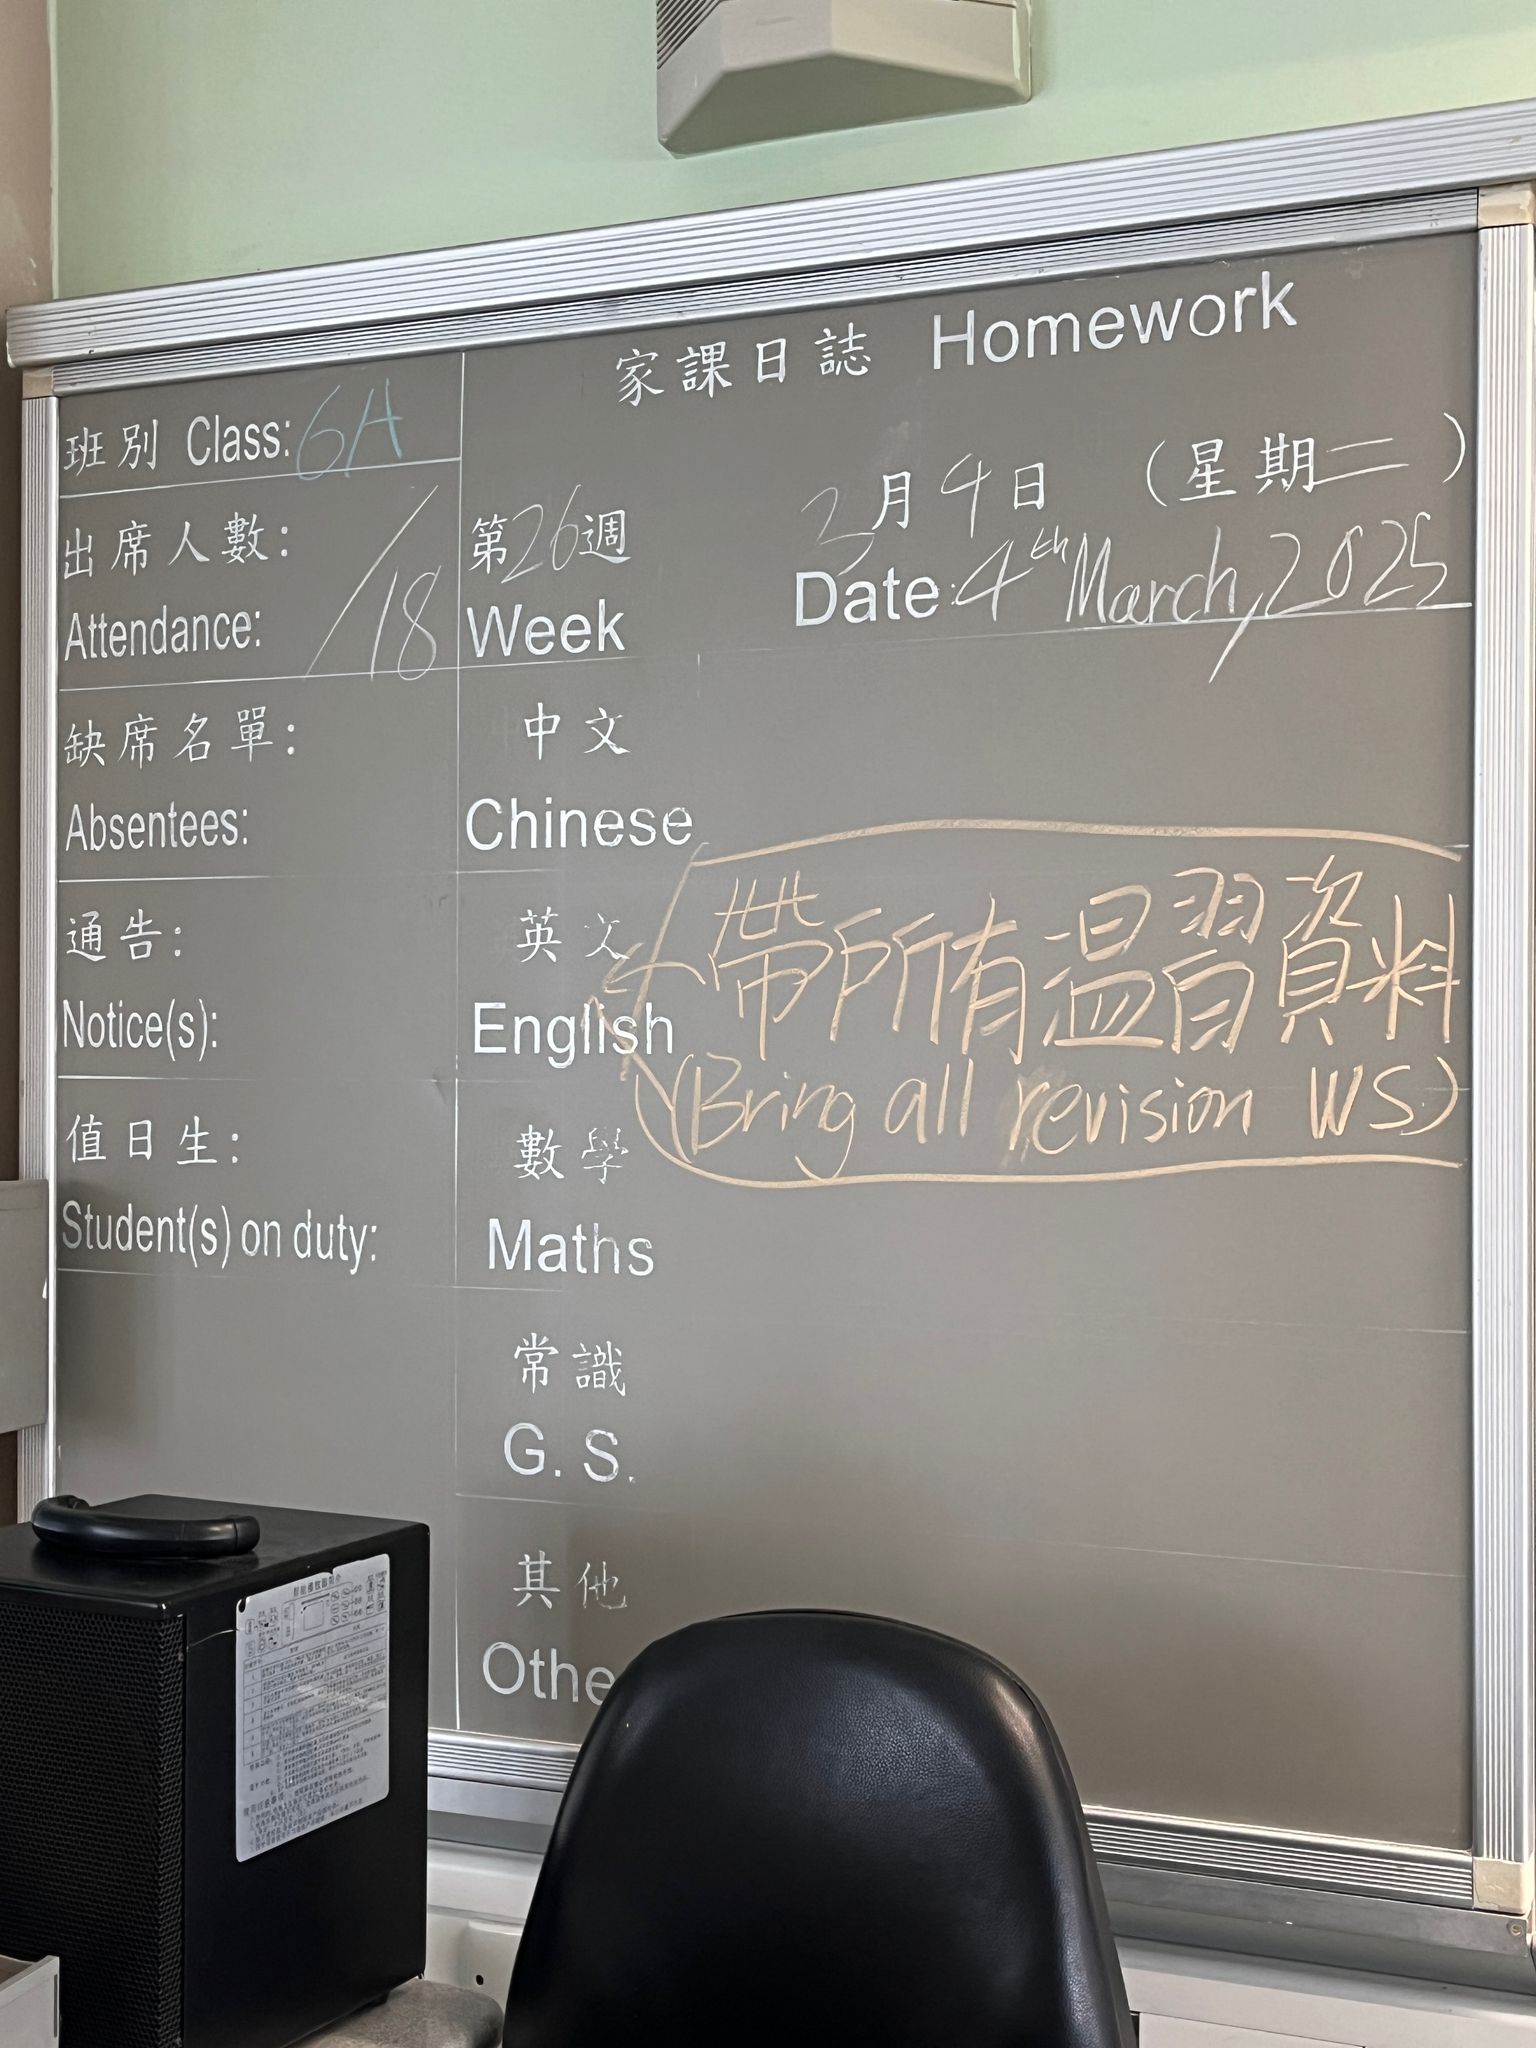 家課日誌 Homework
班別 Class: 6A
出席人數:
Attendance: /18
缺席名單:
Absentees:
通告:
Notice(s):
值日生:
Student(s) on duty:
3月4日 (星期二)
第26週
Week
Date: 4th March, 2025
中文
Chinese
英文
English
帶所有溫習資料
(Bring all revision WS)
數學
Maths
常識
G. S.
其他
Othe